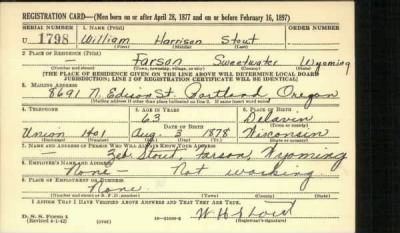 REGISTRATION CARD—(Men born on or after April 28, 1877 and on or before February 16, 1897)
SERIAL NUMBER 1. NAME (Print) ORDER NUMBER
U 1798 William Harrison Stout
(First) (Middle) (Last)
2. PLACE OF RESIDENCE (Print)
— Farson Sweetwater Wyoming
(Number and street) (Town, township, village, or city) (County) (State)
[THE PLACE OF RESIDENCE GIVEN ON THE LINE ABOVE WILL DETERMINE LOCAL BOARD
JURISDICTION; LINE 2 OF REGISTRATION CERTIFICATE WILL BE IDENTICAL]
3. MAILING ADDRESS
8691 N. Edison St. Portland Oregon
[Mailing address if other than place indicated on line 2. If same insert word same]
4. TELEPHONE 5. AGE IN YEARS 6. PLACE OF BIRTH
63 Delavin
DATE OF BIRTH (Town or county)
Union 1401 Aug. 3 1878 Wisconsin
(Exchange) (Number) (Mo.) (Day) (Yr.) (State or country)
7. NAME AND ADDRESS OF PERSON WHO WILL ALWAYS KNOW YOUR ADDRESS
Stout, Farson, Wyoming
8. EMPLOYER'S NAME AND ADDRESS
None — Not working
9. PLACE OF EMPLOYMENT OR BUSINESS
None
(Number and street or R. F. D. number) (Town) (County) (State)
I AFFIRM THAT I HAVE VERIFIED ABOVE ANSWERS AND THAT THEY ARE TRUE.
D. S. S. Form 1
(Revised 4-1-42) (over) W H Stout
(Registrant's signature)